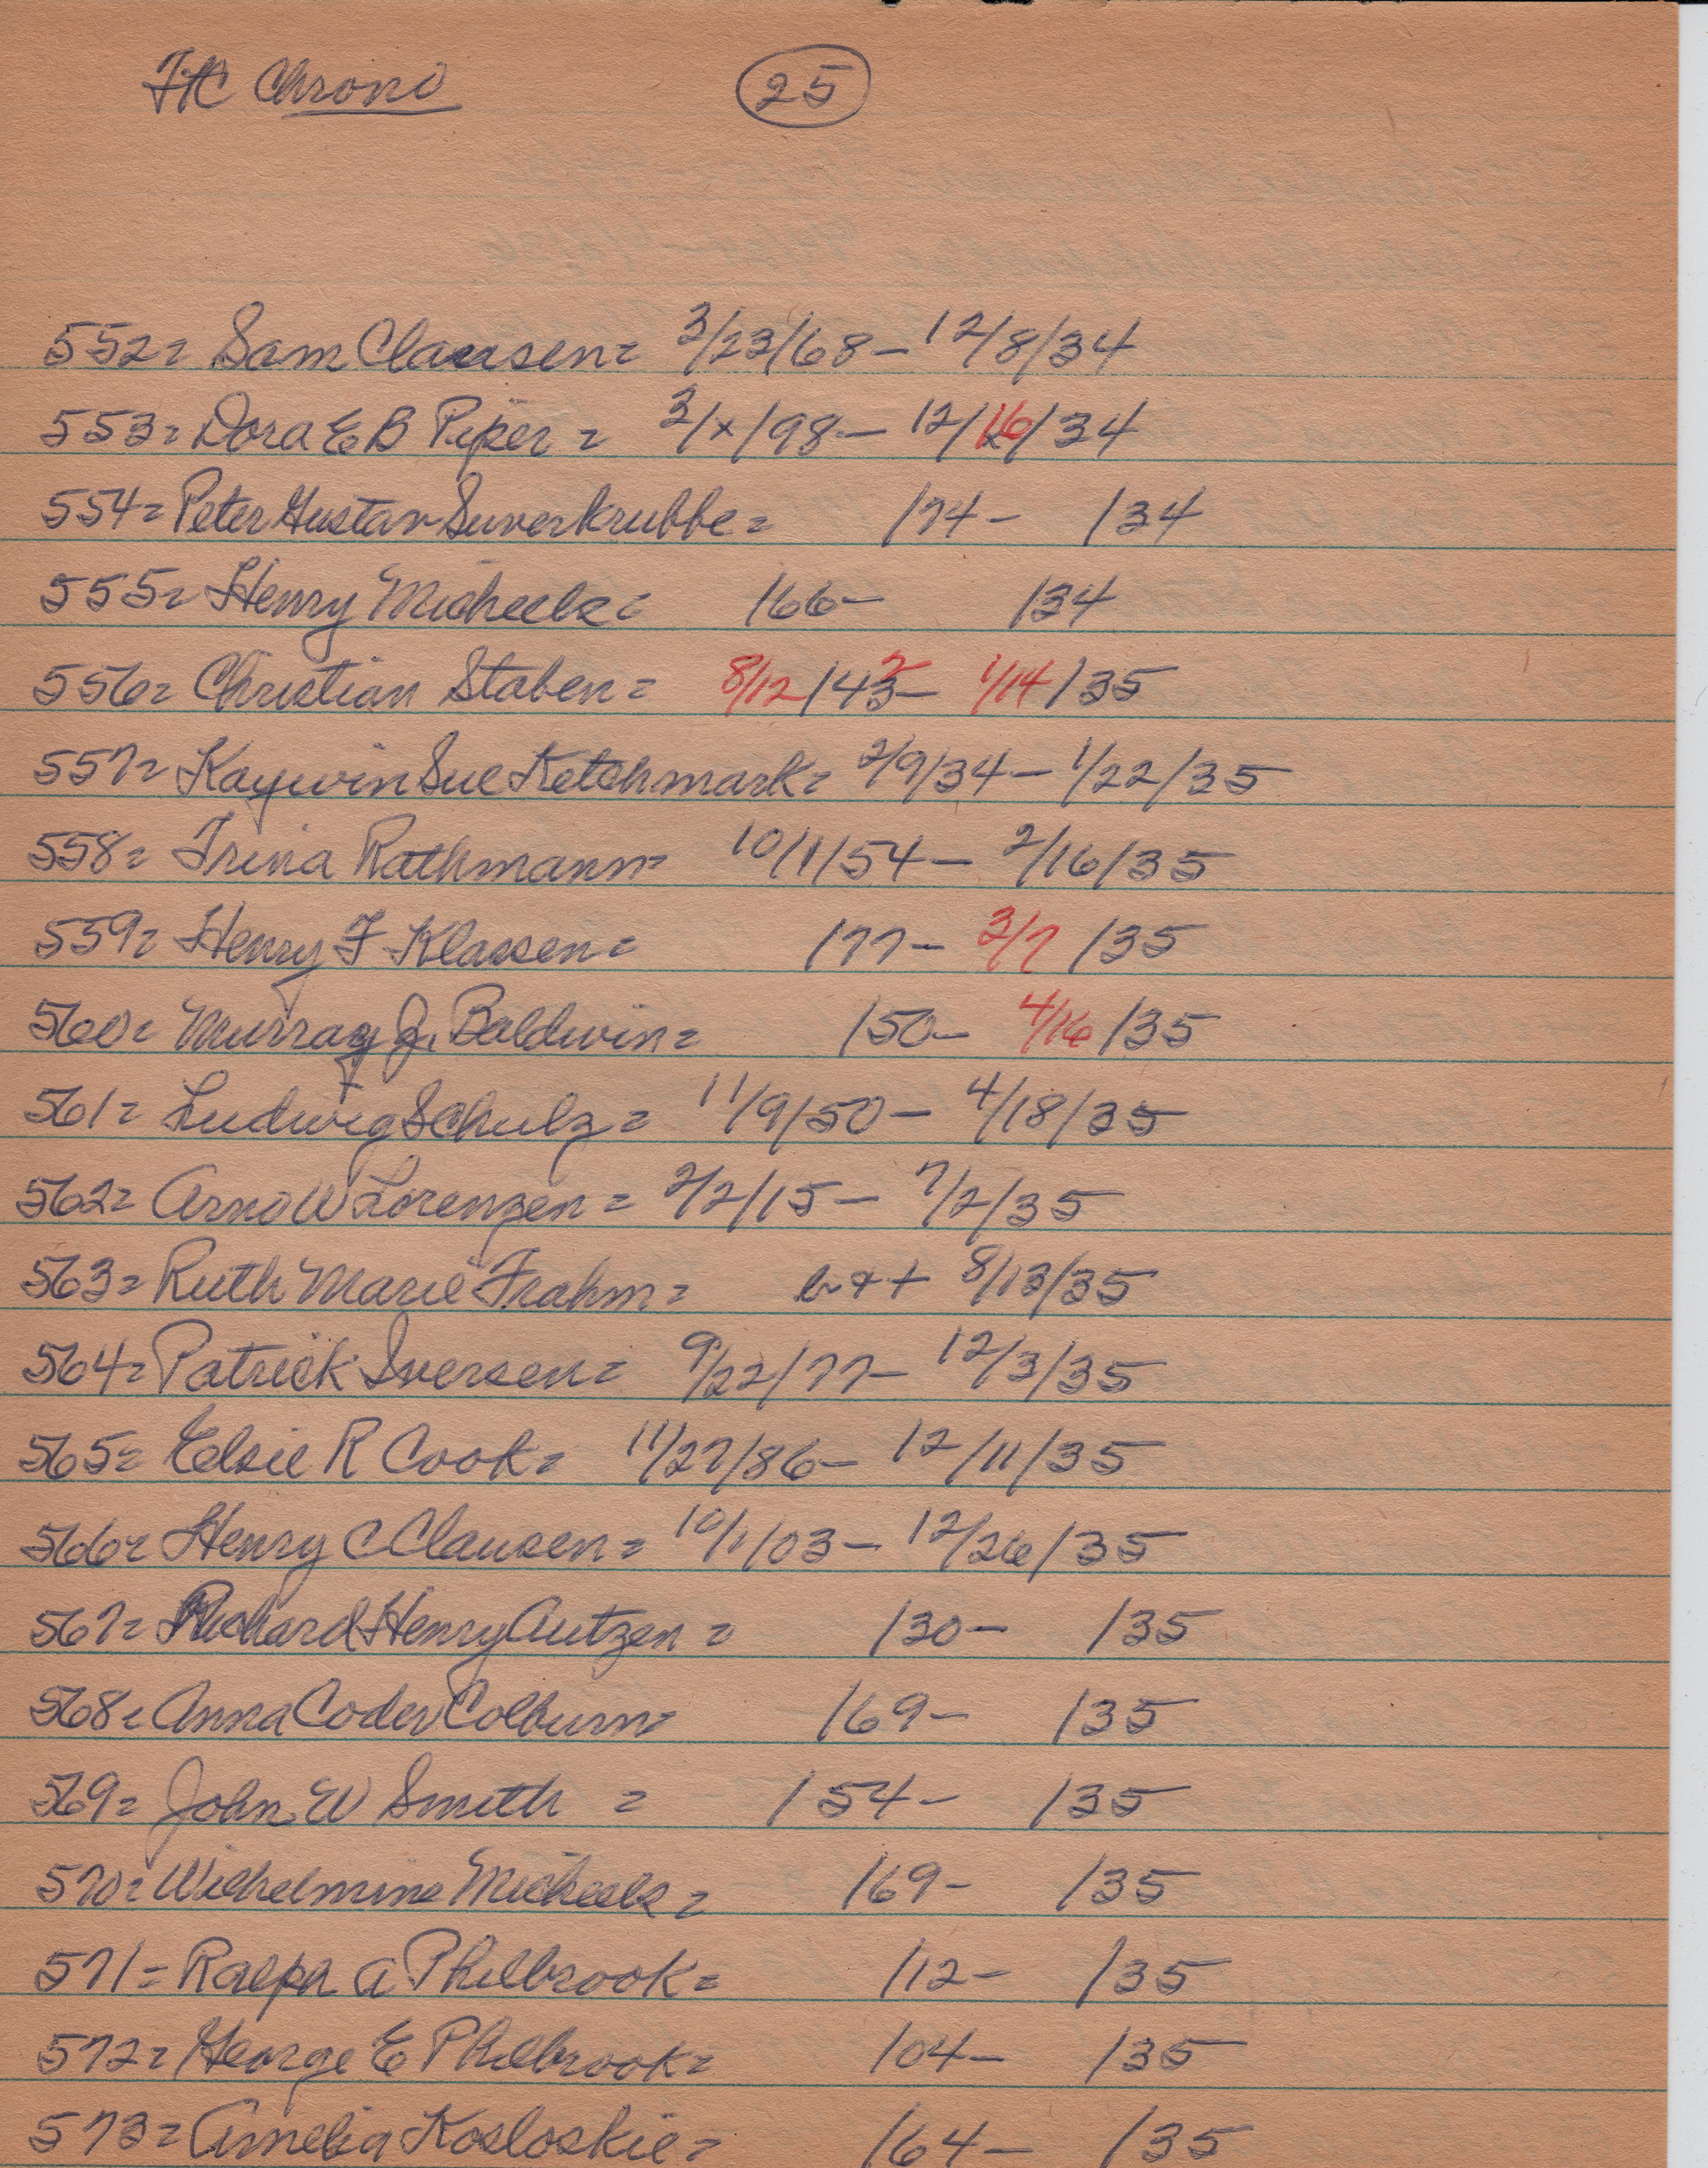 FHC Chrono 25
552= Sam Clausen= 3/23/68- 12/8/34
553= Dora E B Piper = 3/x/98- 12/16/34
554= Peter Gustav Suverkrubbe= /74- /34
555= Henry Micheels= /66- /34
556= Christian Staben= 8/12/432- 1/14/35
557= Kaywin Sue Ketchmark= 2/9/34- 1/22/35
558= Trina Rathmann= 10/1/54- 2/16/35
559= Henry F Klassen= /77- 3/7 /35
560= Murray J. Baldwin= /50- 4/16 /35
561= Ludwig Schulz= 11/9/50- 4/18/35
562= Arno W Lorenzen= 2/2/15- 7/2/35
563= Ruth Marie Frahm= b++ 8/13/35
564= Patrick Iversen= 9/22/77- 12/3/35
565= Elsie R Cook= 11/27/86- 12/11/35
566= Henry C Clausen= 10/1/03- 12/26/35
567= Richard Henry Autzen= /30- /35
568= Anna Coder Colburn= /69- /35
569= John W Smith = /54- /35
570= Wilhelmine Micheels= /69- /35
571= Ralph A Philbrook= /12- /35
572= George E Philbrook= /04- /35
573= Amelia Kosloskie= /64- /35